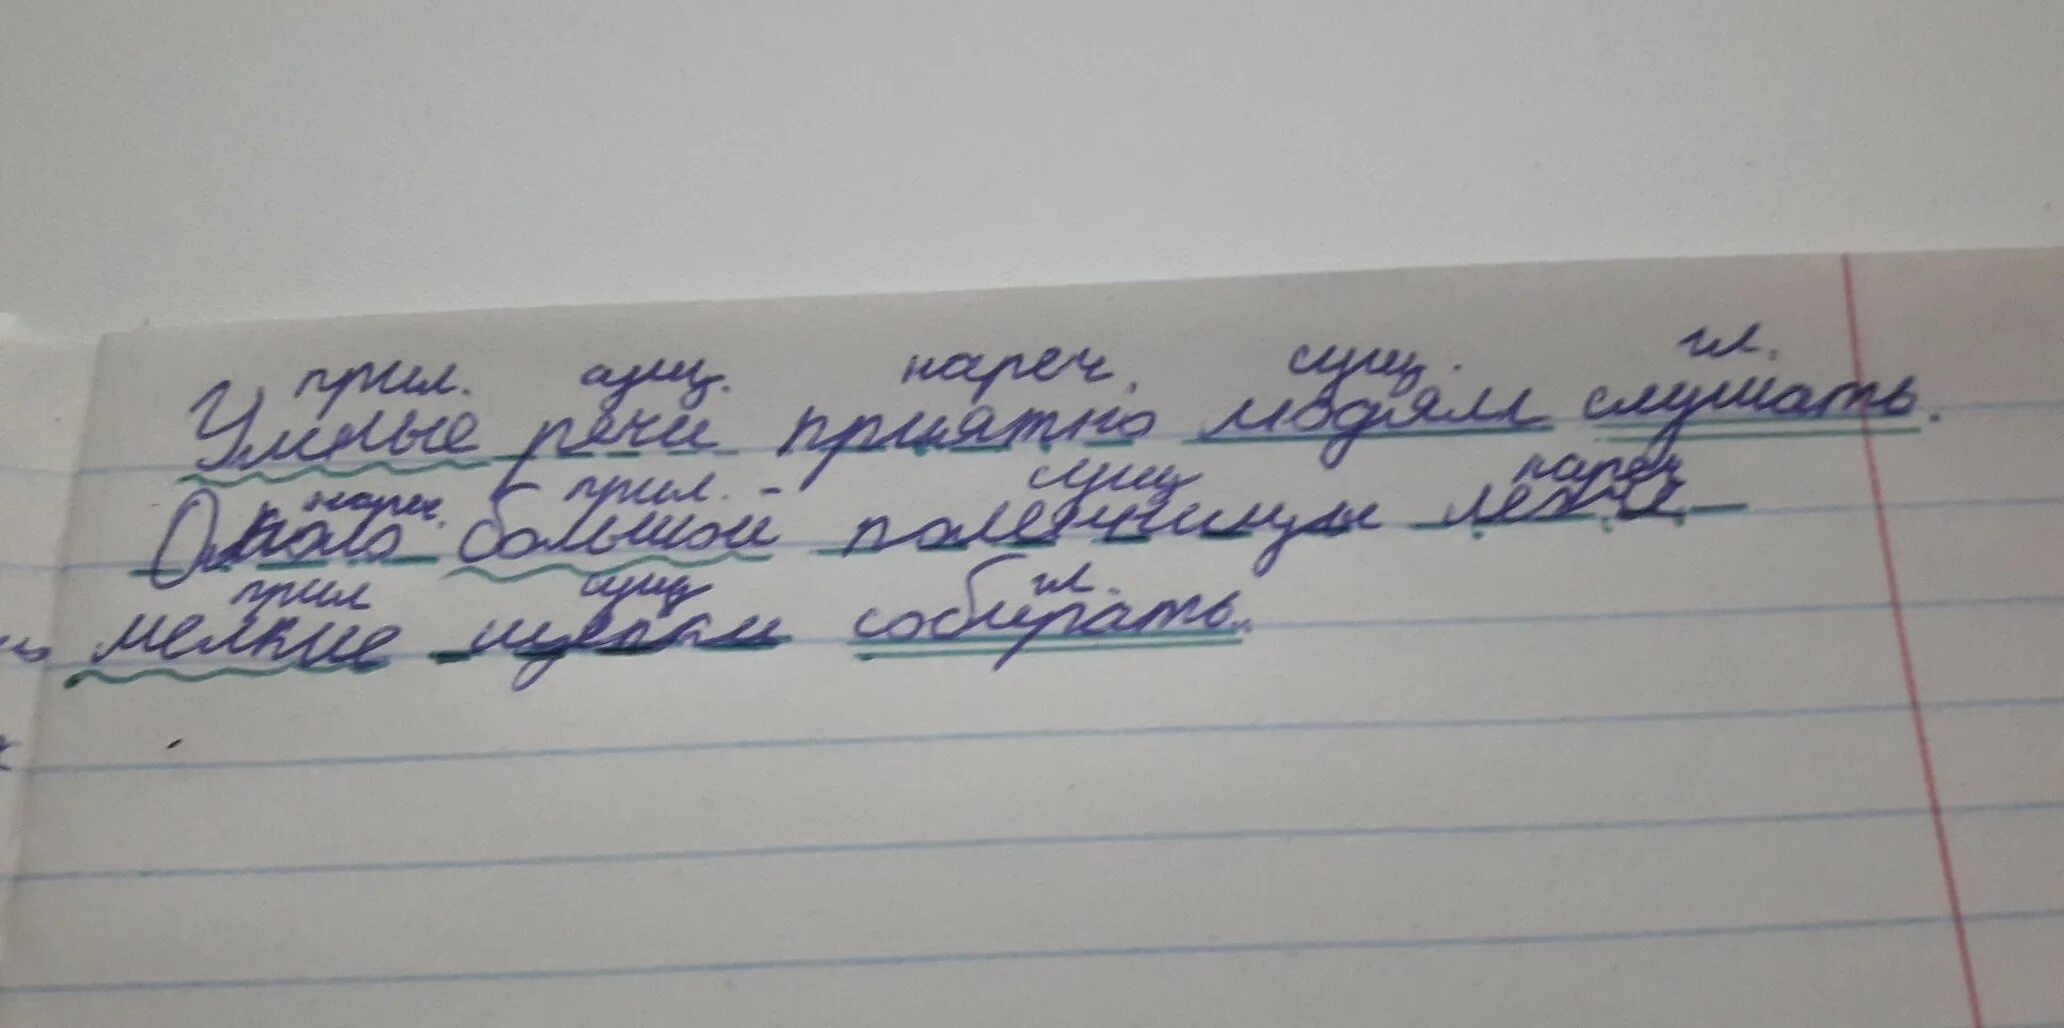 прил. сущ. нареч. сущ. гл.
Умные речи приятно людям слушать.
нареч. прил. сущ нареч
Около большой поленницы легче
прил сущ гл.
мелкие щепки собирать.